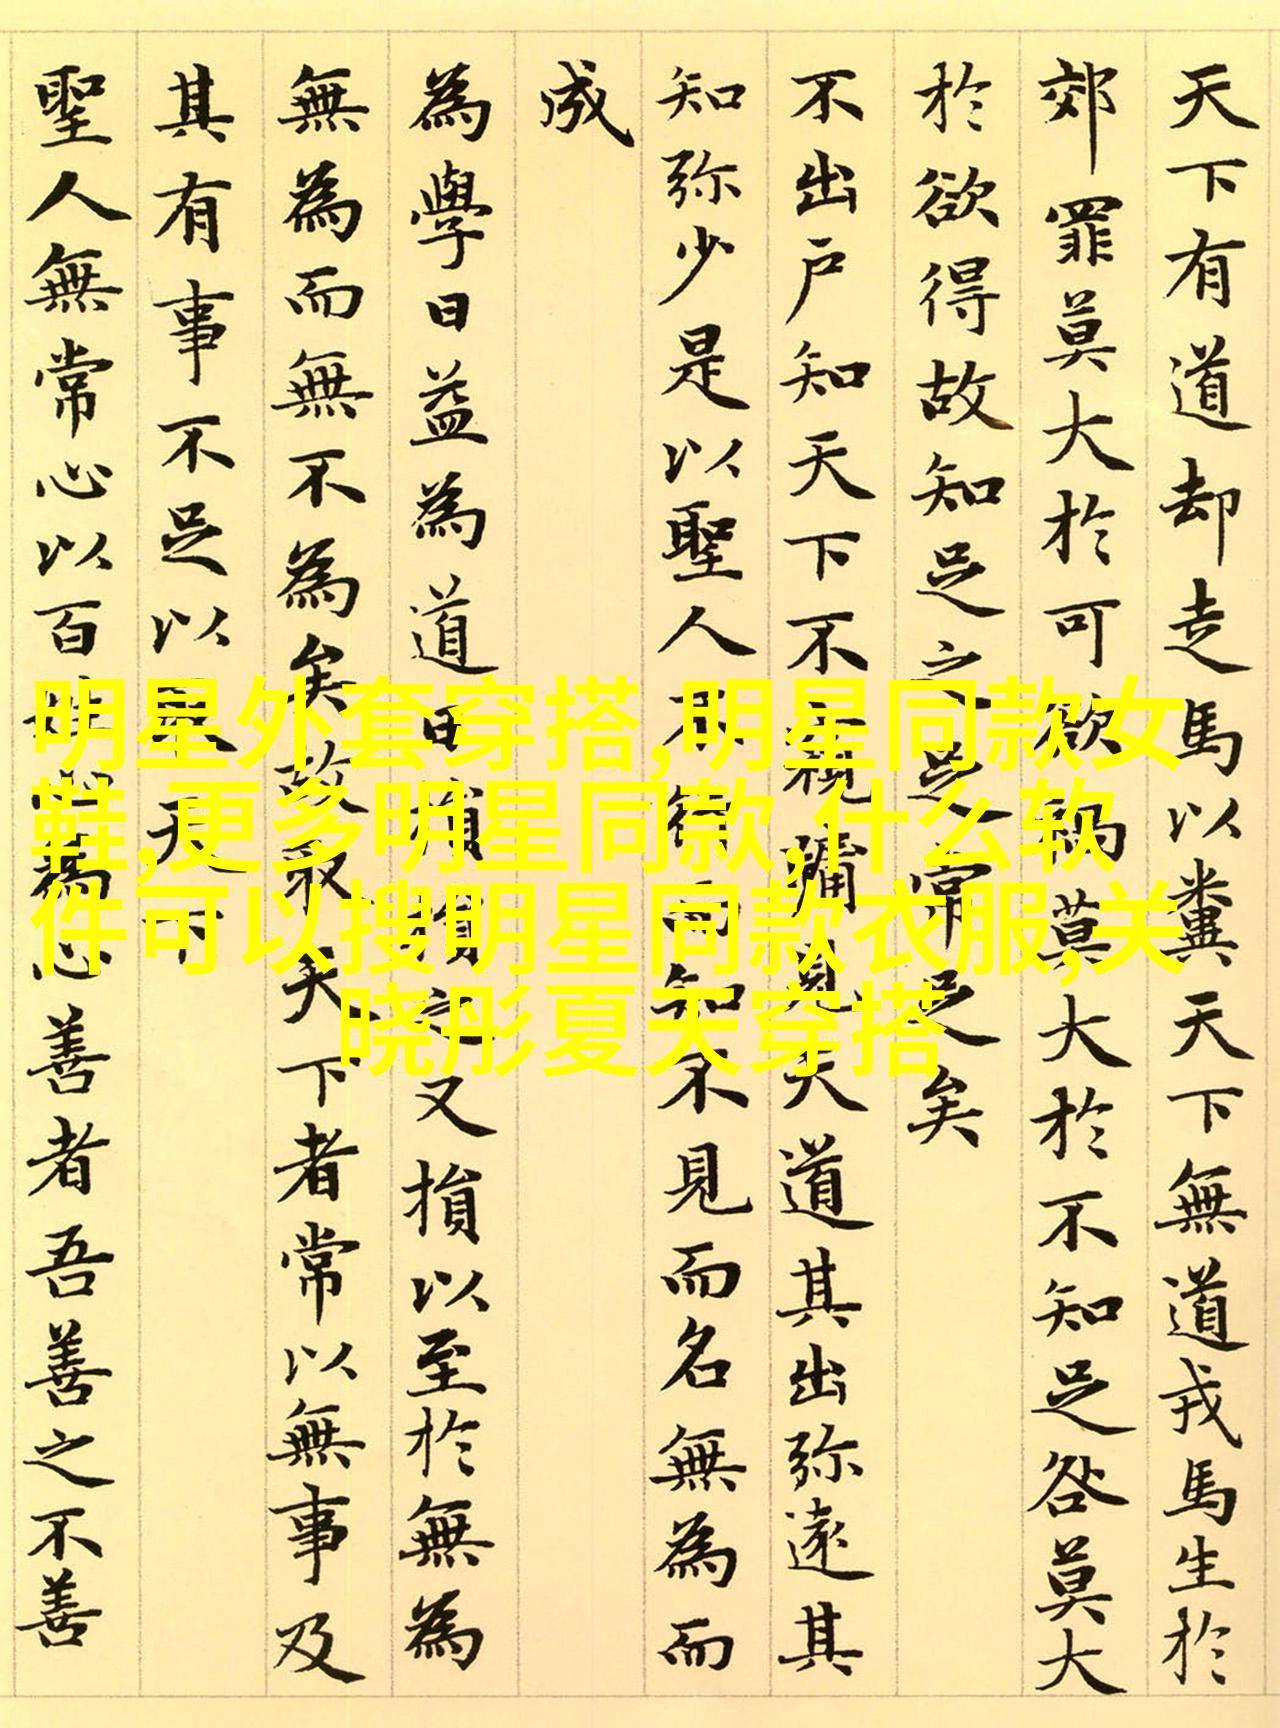 天下有道却走馬以糞天下無道戎馬生於
郊罪莫大於可欲禍莫大於不知足咎莫大
於欲得故知足之足常足矣
不出户知天下不牖見天道其出弥遠其
知弥少是以聖人不行而知不見而名無為而
成
為學日益為道日損損之又損以至於無為
無為而無不為矣故取天下者常以無事及
其有事不足以取天下
聖人無常心以百姓心為心善者吾善之不善
明星外套穿搭,明星同款女
鞋,更多明星同款,什么软
件可以搜明星同款衣服,关
晓彤夏天穿搭